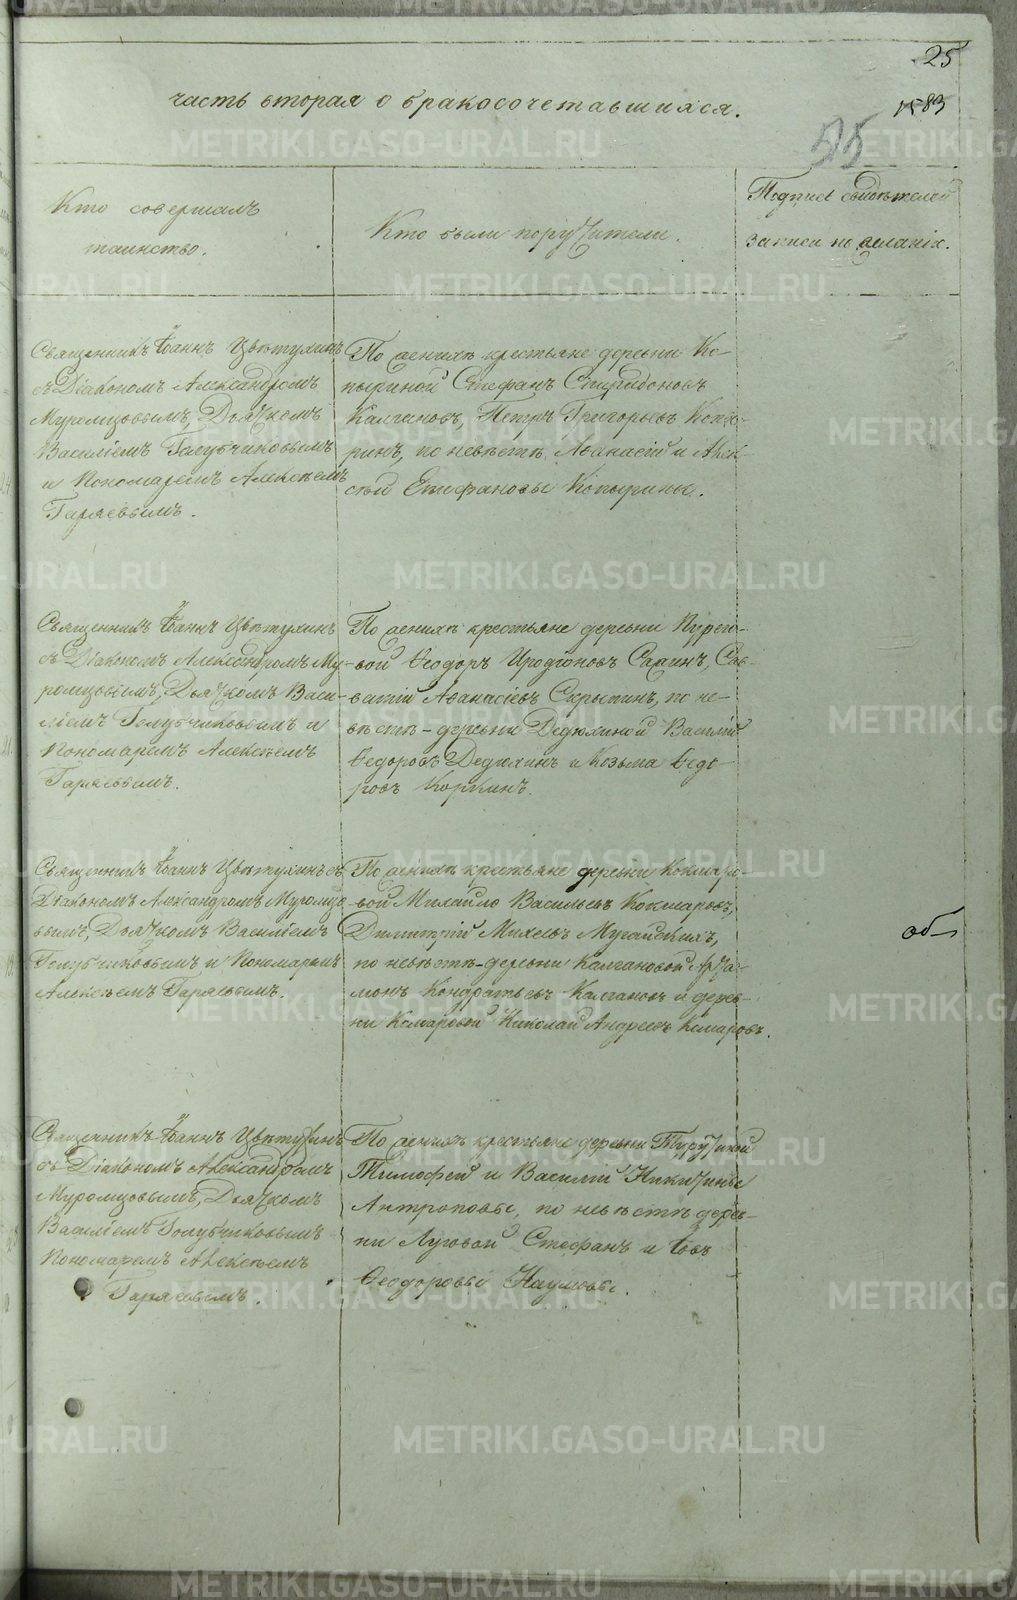 25
часть вторая о бракосочетавшихся.
1583
55
Кто совершалъ
таинство.
Кто были поручители.
Подписи свидѣтелей
записи по желанію.
Священникъ Іоаннъ Цвѣтухинъ
съ Діакономъ Александромъ
Муромцовымъ, Дьячкомъ
Василіемъ Голубчиковымъ
и Пономаремъ Алексѣемъ
Гаряевымъ.
По женихѣ крестьяне деревни Ко-
пыриной Стефанъ Спиридоновъ
Калгановъ, Петръ Григорьевъ Копы-
ринъ, по невѣстѣ Аѳанасій и Алек-
сѣй Стефановы Копырины.
Священникъ Іоаннъ Цвѣтухинъ
съ Діакономъ Александромъ Му-
ромцовымъ, Дьячкомъ Васи-
ліемъ Голубчиковымъ и
Пономаремъ Алексѣемъ
Гаряевымъ.
По женихѣ крестьяне деревни
вой Ѳеодоръ Иродіоновъ Сав-
ватій Аѳанасіевъ Скрыпинъ, по не-
вѣстѣ - деревни Дедюхиной Василій
Ѳедоровъ Дедюхинъ и Козьма Ѳедо
ровъ Коркинъ.
Священникъ Іоаннъ Цвѣтухинъ съ
Діакономъ Александромъ Муромцо
вымъ, Дьячкомъ Василіемъ
Голубчиковымъ и Пономаремъ
Алексѣемъ Гаряевымъ.
По женихѣ крестьяне деревни Кокшаро-
вой Михайло Васильевъ Кокшаровъ,
Димитрій Михеевъ Мугайскихъ,
по невѣстѣ - деревни Калгановой Арта-
монъ Кондратьевъ Калгановъ и дерев-
ни Комаровой Николай Андреевъ Комаровъ.
об
Священникъ Іоаннъ Цвѣтухинъ
съ Діакономъ Александромъ
Муромцовымъ, Дьячкомъ
Василіемъ Голубчиковымъ
Пономаремъ Алексѣемъ
Гаряевымъ.
По женихѣ крестьяне деревни
Тимофей и Василій Никитины
Антроповы, по невѣстѣ дерев-
ни Луговой Стефанъ и Іовъ
Ѳеодоровы Наумовы.